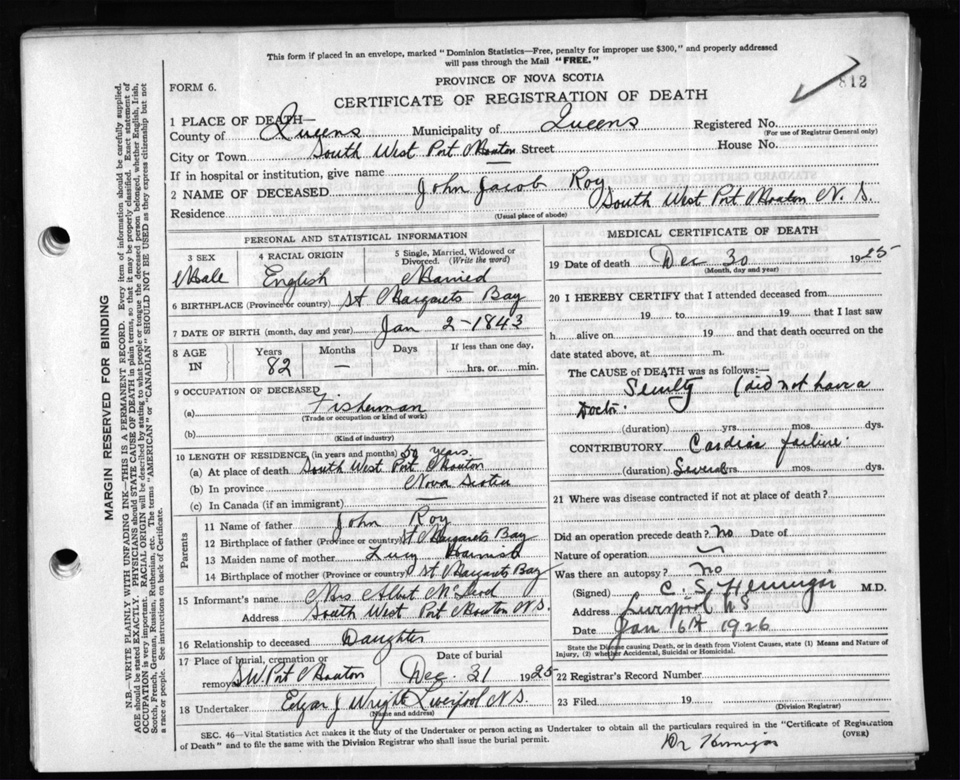 This form if placed in an envelope, marked "Dominion Statistics—Free, penalty for improper use $300," and properly addressed
will pass through the Mail "FREE."
812
FORM 6.
PROVINCE OF NOVA SCOTIA
CERTIFICATE OF REGISTRATION OF DEATH
1 PLACE OF DEATH—
County of Queens Municipality of Queens Registered No.
(For use of Registrar General only)
City or Town South West Port Mouton Street House No.
If in hospital or institution, give name —
2 NAME OF DECEASED John Jacob Roy
Residence South West Port Mouton N. S.
(Usual place of abode)
PERSONAL AND STATISTICAL INFORMATION
3 SEX 4 RACIAL ORIGIN 5 Single, Married, Widowed or Divorced. (Write the word)
Male English Married
6 BIRTHPLACE (Province or country) St Margarets Bay
7 DATE OF BIRTH (month, day and year) Jan 2-1843
8 AGE IN Years Months Days If less than one day,
82 — hrs. or min.
9 OCCUPATION OF DECEASED
(a) Fisherman
(Trade or occupation or kind of work)
(b)
(Kind of industry)
10 LENGTH OF RESIDENCE (in years and months) 50 years.
(a) At place of death South West Port Mouton
(b) In province Nova Scotia
(c) In Canada (if an immigrant) —
Parents
11 Name of father John Roy
12 Birthplace of father (Province or country) St Margarets Bay
13 Maiden name of mother Lucy Harnish
14 Birthplace of mother (Province or country) St Margarets Bay
15 Informant's name Mrs Albert McLeod
Address South West Port Mouton N.S.
16 Relationship to deceased Daughter
17 Place of burial, cremation or removal S.W. Port Mouton Date of burial Dec. 31 1925
18 Undertaker Edgar J Wright Liverpool N.S.
(Name and address)
MEDICAL CERTIFICATE OF DEATH
19 Date of death Dec 30 1925
(Month, day and year)
20 I HEREBY CERTIFY that I attended deceased from
19 to 19 that I last saw
h alive on 19 and that death occurred on the
date stated above, at m.
The CAUSE of DEATH was as follows:—
Senilty (did not have a
Doctor.
(duration) yrs. mos. dys.
CONTRIBUTORY Cardiac failure.
(duration) Several yrs. mos. dys.
21 Where was disease contracted if not at place of death?
Did an operation precede death? no Date of
Nature of operation
Was there an autopsy? no
(Signed) C. S. Hennigar M.D.
Address Liverpool NS
Date Jan 6th 1926
State the Disease causing Death, or in death from Violent Causes, state (1) Means and Nature of
Injury, (2) whether Accidental, Suicidal or Homicidal.
22 Registrar's Record Number
23 Filed 19
(Division Registrar)
SEC. 46—Vital Statistics Act makes it the duty of the Undertaker or person acting as Undertaker to obtain all the particulars required in the "Certificate of Registration
of Death" and to file the same with the Division Registrar who shall issue the burial permit.
(OVER)
Dr Hennigar
MARGIN RESERVED FOR BINDING
N.B.—WRITE PLAINLY WITH UNFADING INK—THIS IS A PERMANENT RECORD. Every item of information should be carefully supplied.
AGE should be stated EXACTLY. PHYSICIANS should STATE CAUSE OF DEATH in plain terms, so that it may be properly classified. Exact statement of
OCCUPATION is very important. RACIAL ORIGIN will be described by stating to what people or tongue the deceased person belonged, whether English, Irish,
Scotch, French, German, Russian, Ruthenian, etc. The terms "AMERICAN" or "CANADIAN" SHOULD NOT BE USED as they express citizenship but not
a race or people. See instructions on back of Certificate.